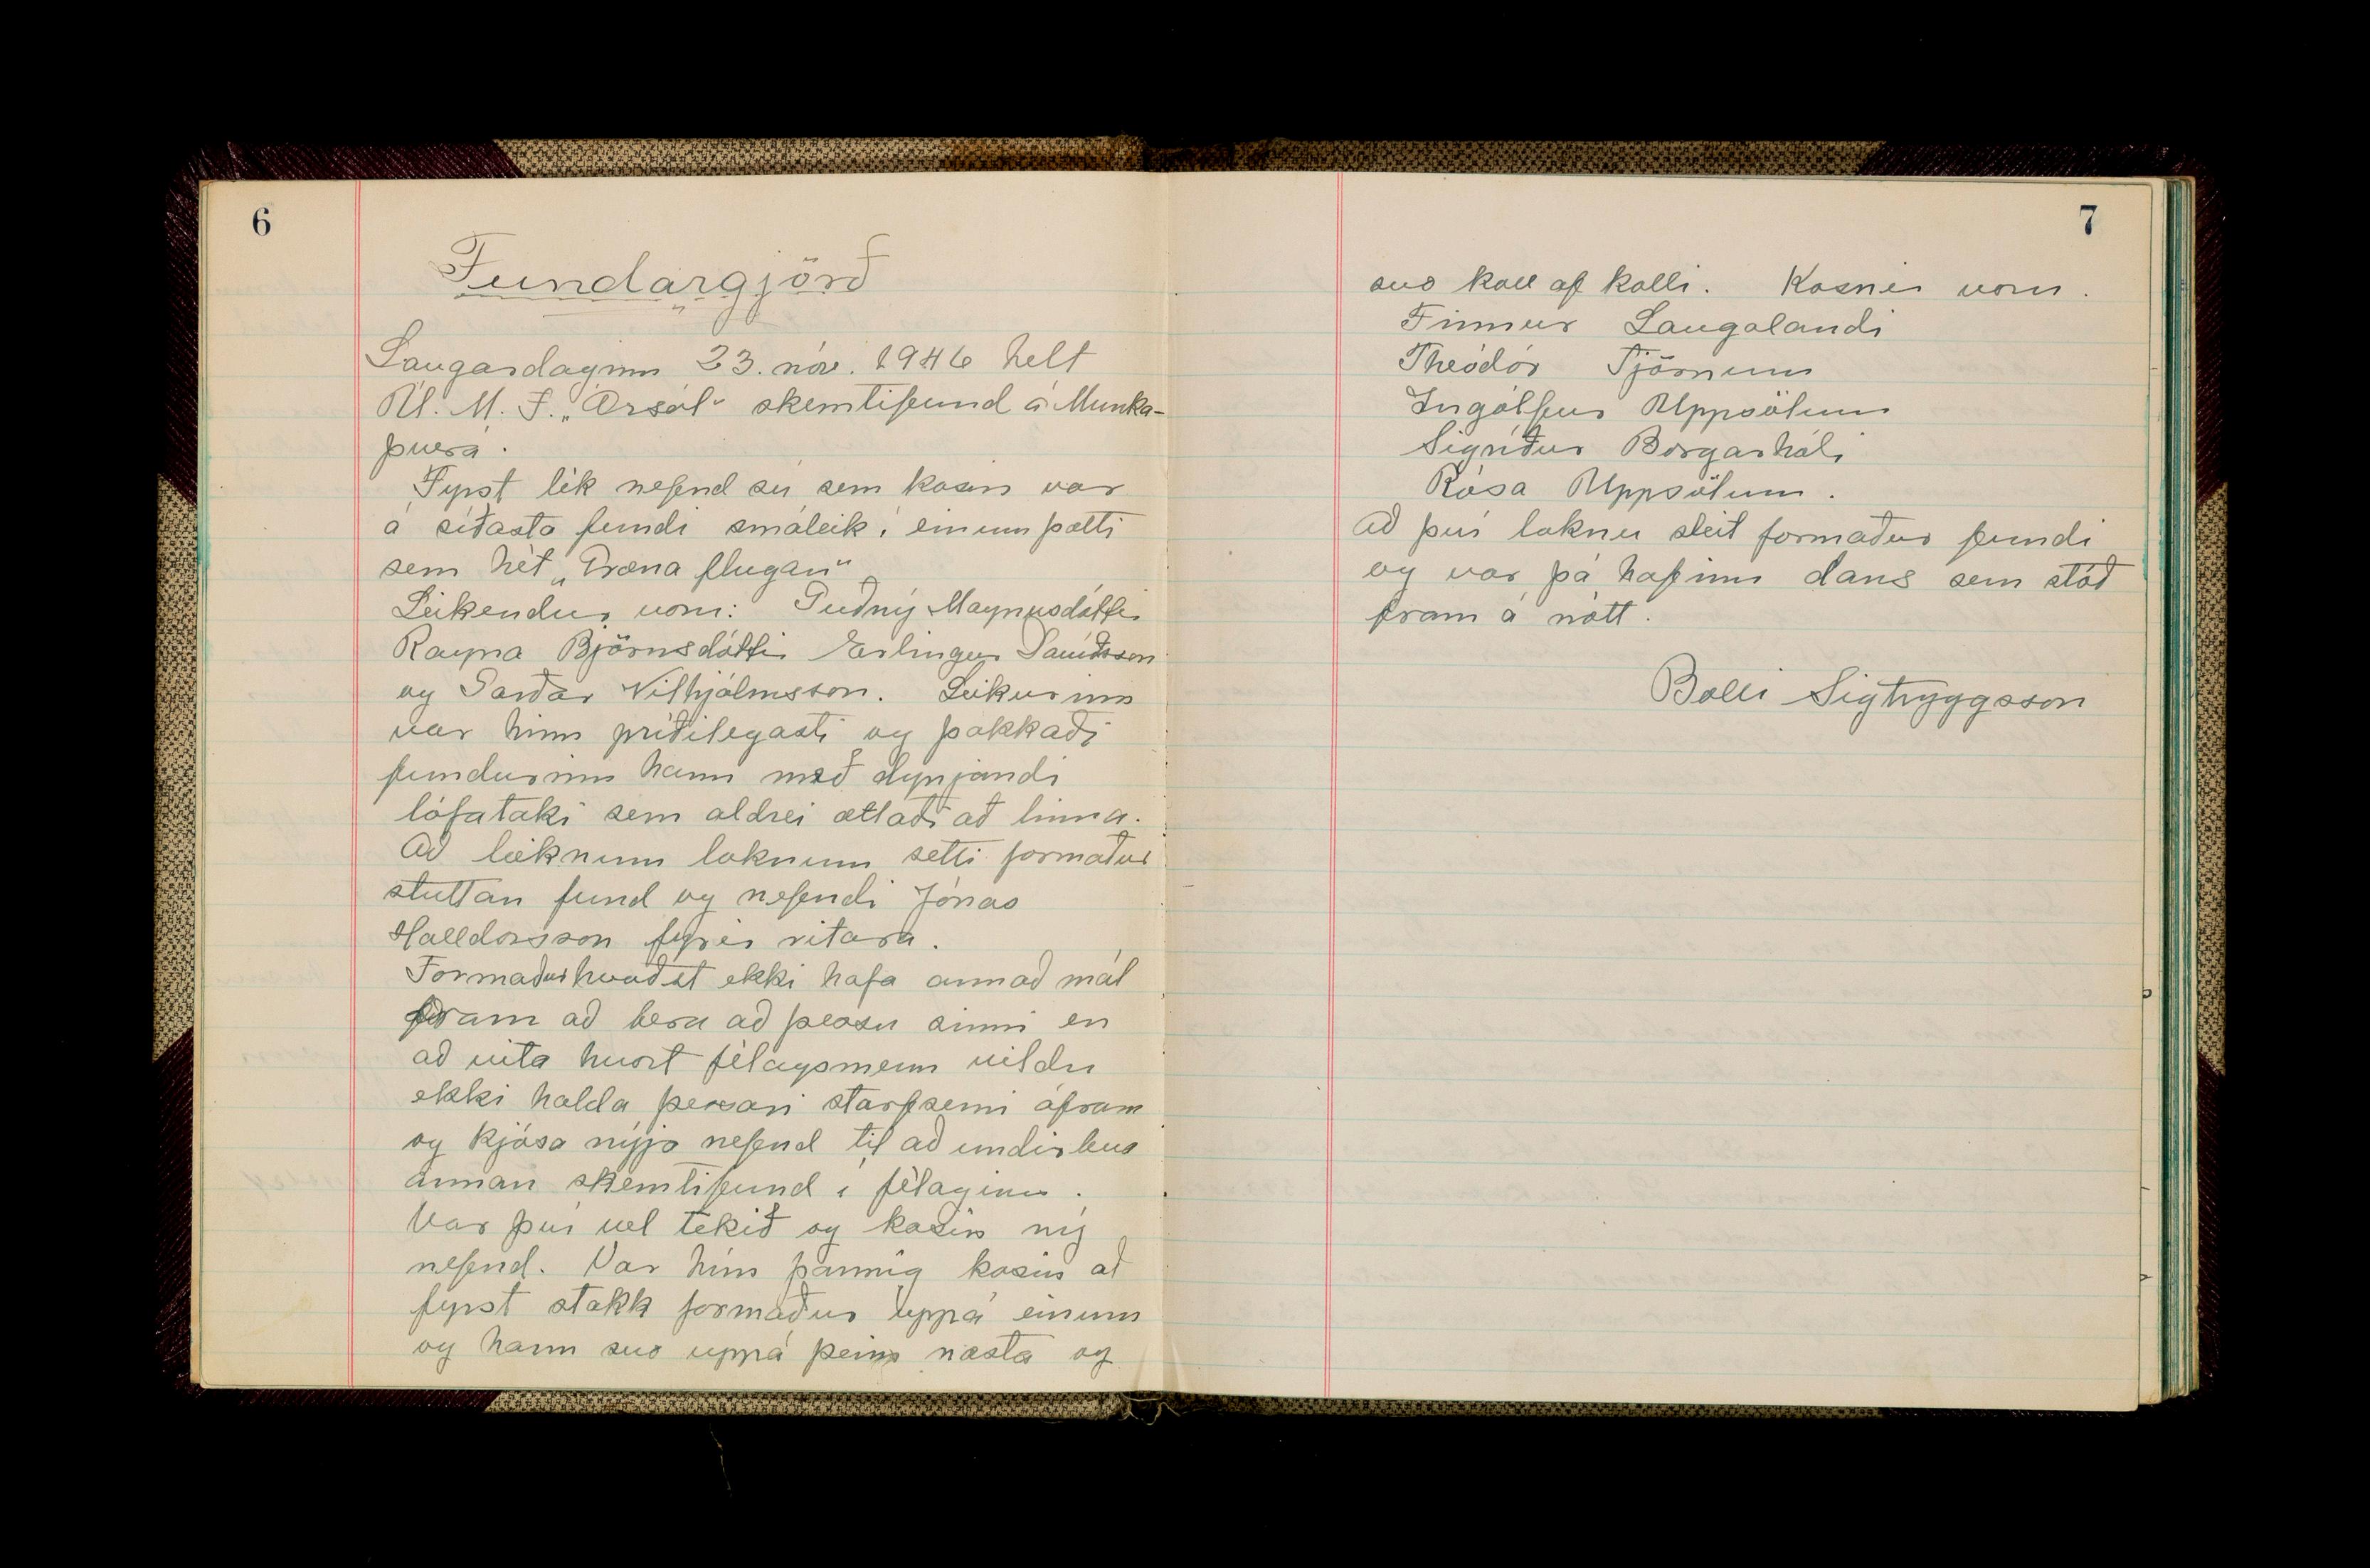 6
Fundargjörð
Laugardaginn 23. nóv. 1946 helt
U. M. F. „Ársól" skemtifund á Munka-
þverá.
Fyrst lék nefnd sú sem kosin var
á síðasta fundi smáleik í einum þætti
sem hét „Græna flugan"
Leikendur voru: Guðný Magnúsdóttir
Ragna Björnsdóttir Erlingur Davíðsson
og Garðar Vilhjálmsson. Leikurinn
var hinn prýðilegasti og þakkaði
fundurinn hann með dynjandi
lófataki sem aldrei ætlaði að linna.
Að leiknum loknum setti formaður
stuttan fund og nefndi Jónas
Halldorsson fyrir ritara.
Formaður kvaðst ekki hafa annað mál
fram að bera að þessu sinni en
að vita hvort félagsmenn vildu
ekki halda þessari starfsemi áfram
og kjósa nýja nefnd til að undirbúa
annan skemtifund í félaginu.
Var því vel tekið og kosin ný
nefnd. Var hún þannig kosin að
fyrst stakk formaður uppá einum
og hann svo uppá þeim næsta og
7
svo koll af kolli. Kosnir voru.
Finnur Laugalandi
Theódór Tjörnum
Ingólfur Uppsölum
Sigríður Borgarhóli
Rósa Uppsölum.
Að því loknu sleit formaður fundi
og var þá hafinn dans sem stóð
fram á nótt.
Bolli Sigtryggsson